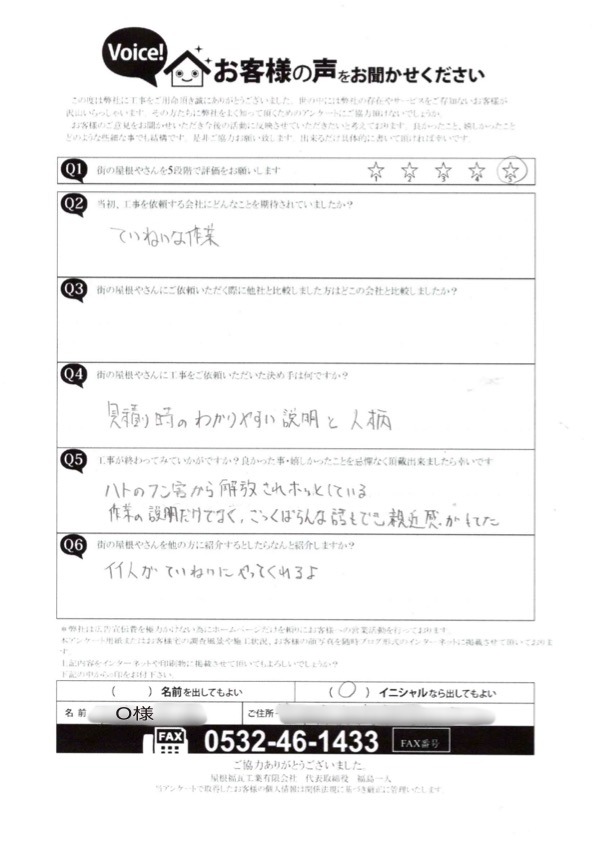 Voice!
お客様の声をお聞かせください
この度は弊社に工事をご用命頂き誠にありがとうございました。世の中には弊社の存在やサービスをご存知ないお客様が
沢山いらっしゃいます。その方たちに弊社をよく知って頂くためのアンケートにご協力頂けないでしょうか。
お客様のご意見をお聞かせいただき今後の活動に反映させていただきたいと考えております。良かったこと、嬉しかったこと
どのような些細な事でも結構です。是非ご協力お願い致します。出来るだけ具体的に書いて頂ければ幸いです。
Q1 街の屋根やさんを5段階で評価をお願いします
1 2 3 4 5
Q2 当初、工事を依頼する会社にどんなことを期待されていましたか？
ていねいな作業
Q3 街の屋根やさんにご依頼いただく際に他社と比較しました方はどこの会社と比較しましたか？
Q4 街の屋根やさんに工事をご依頼いただいた決め手は何ですか？
見積り時のわかりやすい説明と人柄
Q5 工事が終わってみていかがですか？良かった事・嬉しかったことを忌憚なく頂戴出来ましたら幸いです
ハトのフン害から解放されホッとしている
作業の説明だけでなく、ざっくばらんな話もでき親近感がもてた
Q6 街の屋根やさんを他の方に紹介するとしたらなんと紹介しますか？
イイ人がていねいにやってくれるよ
＊弊社は広告宣伝費を極力かけない為にホームページだけを頼りにお客様への営業活動を行っております。
本アンケート用紙またはお客様宅の調査風景や施工状況、お客様の顔写真を随時ブログ形式のインターネットに掲載させて頂いております
上記内容をインターネットや印刷物に掲載させて頂いてもよろしいでしょうか？
下記の中から○印をお付け下さい。
（ ）名前を出してもよい （○）イニシャルなら出してもよい
名前 O様 ご住所
FAX 0532-46-1433 FAX番号
ご協力ありがとうございました
屋根福瓦工業有限会社 代表取締役 福島一人
当アンケートで取得したお客様の個人情報は関係法規に基づき厳正に管理いたします。